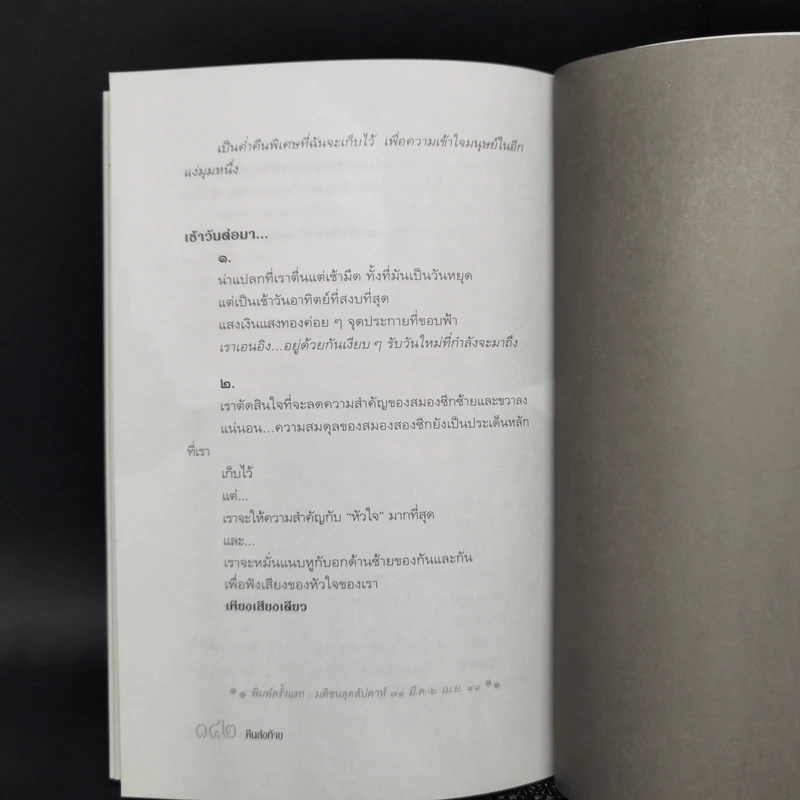 เป็นค่ำคืนพิเศษที่ฉันจะเก็บไว้ เพื่อความเข้าใจมนุษย์ในอีก
แง่มุมหนึ่ง
เช้าวันต่อมา...
๑.
น่าแปลกที่เราตื่นแต่เช้ามืด ทั้งที่มันเป็นวันหยุด
แต่เป็นเช้าวันอาทิตย์ที่สงบที่สุด
แสงเงินแสงทองค่อย ๆ จุดประกายที่ขอบฟ้า
เราเอนอิง...อยู่ด้วยกันเงียบ ๆ รับวันใหม่ที่กำลังจะมาถึง
๒.
เราตัดสินใจที่จะลดความสำคัญของสมองซีกซ้ายและขวาลง
แน่นอน...ความสมดุลของสมองสองซีกยังเป็นประเด็นหลัก
ที่เรา
เก็บไว้
แต่...
เราจะให้ความสำคัญกับ “หัวใจ” มากที่สุด
และ...
เราจะหมั่นแนบหูกับอกด้านซ้ายของกันและกัน
เพื่อฟังเสียงของหัวใจของเรา
เพียงเสียงเดียว
พิมพ์ครั้งแรก : มติชนสุดสัปดาห์ ๓๑ มี.ค.-๖ เม.ย.
๑๔๒ คืนส่งท้าย